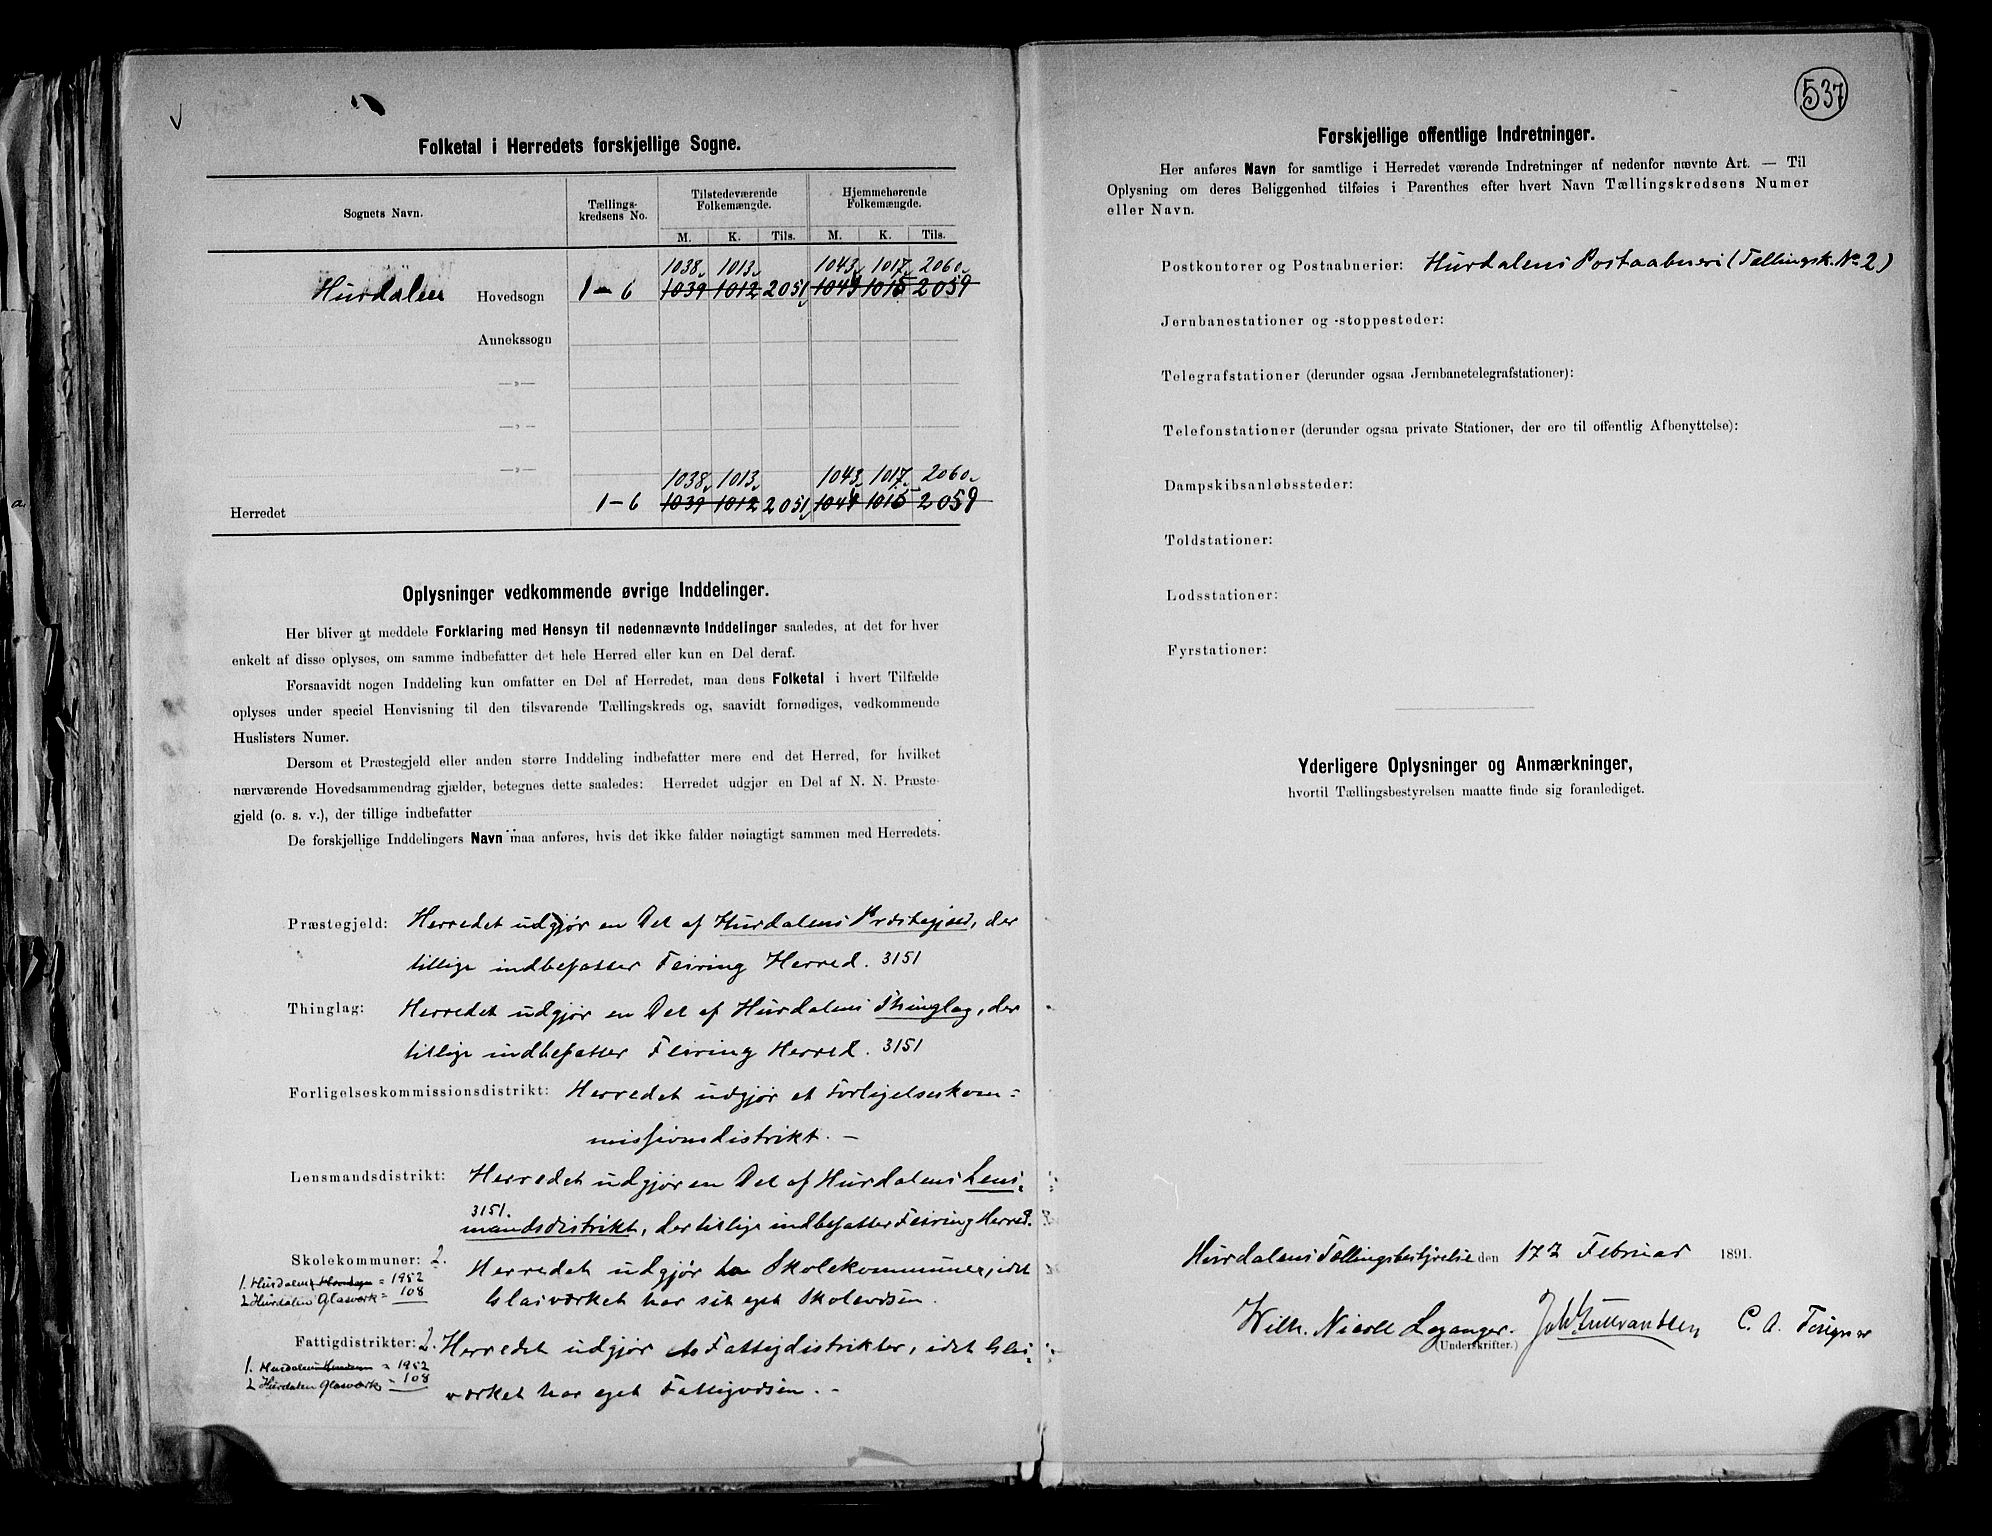 Folketal i Herredets forskjellige Sogne.
Sognets Navn.
Tællings-
kredsens No.
Tilstedeværende
Folkemængde.
Hjemmehørende
Folkemængde.
M. K. Tils. M. K. Tils.
1038 1013 1043 1017 2060
Hurdalen Hovedsogn 1-6 1039 1012 2051 1044 1015 2059
Annekssogn
—»—
—»—
—»—
1038 1013 1043 1017 2060
Herredet 1-6 1039 1012 2051 1044 1015 2059
Oplysninger vedkommende øvrige Inddelinger.
Her bliver at meddele Forklaring med Hensyn til nedennævnte Inddelinger saaledes, at det for hver
enkelt af disse oplyses, om samme indbefatter det hele Herred eller kun en Del deraf.
Forsaavidt nogen Inddeling kun omfatter en Del af Herredet, maa dens Folketal i hvert Tilfælde
oplyses under speciel Henvisning til den tilsvarende Tællingskreds og, saavidt fornødiges, vedkommende
Huslisters Numer.
Dersom et Præstegjeld eller anden større Inddeling indbefatter mere end det Herred, for hvilket
nærværende Hovedsammendrag gjælder, betegnes dette saaledes: Herredet udgjør en Del af N. N. Præste-
gjeld (o. s. v.), der tillige indbefatter
De forskjellige Inddelingers Navn maa anføres, hvis det ikke falder nøiagtigt sammen med Herredets.
Præstegjeld: Herredet udgjør en Del af Hurdalens Præstegjeld, der
tillige indbefatter Feiring Herred. 3151
Thinglag: Herredet udgjør en Del af Hurdalens Thinglag, der
tillige indbefatter Feiring Herred. 3151
Forligelseskommissionsdistrikt: Herredet udgjør et Forligelseskom-
missionsdistrikt. —
Lensmandsdistrikt: Herredet udgjør en Del af Hurdalens Lens-
3151.
mandsdistrikt, der tillige indbefatter Feiring Herred.
Skolekommuner: 2. Herredet udgjør to Skolekommuner, idet
1. Hurdalens = 1952
2 Hurdalen Glasværk = 108
Glasværket har sit eget Skolevæsen.
Fattigdistrikter: 2. Herredet udgjør to Fattigdistrikter, idet Glas-
1. Hurdalens = 1952
2 Hurdalen Glasværk = 108
værket har eget Fattigvæsen. -
537
Forskjellige offentlige Indretninger.
Her anføres Navn for samtlige i Herredet værende Indretninger af nedenfor nævnte Art. — Til
Oplysning om deres Beliggenhed tilføies i Parenthes efter hvert Navn Tællingskredsens Numer
eller Navn.
Postkontorer og Postaabnerier: Hurdalens Postaabneri (Tællingsk. No 2)
Jernbanestationer og -stoppesteder:
Telegrafstationer (derunder ogsaa Jernbanetelegrafstationer):
Telefonstationer (derunder ogsaa private Stationer, der ere til offentlig Afbenyttelse):
Dampskibsanløbssteder:
Toldstationer:
Lodsstationer:
Fyrstationer:
Yderligere Oplysninger og Anmærkninger,
hvortil Tællingsbestyrelsen maatte finde sig foranlediget.
Hurdalens Tællingsbestyrelse den 17 Februar 1891.
Wilh. Nicoll Leganger. Joh Gullvandsen C. A.
(Underskrifter.)